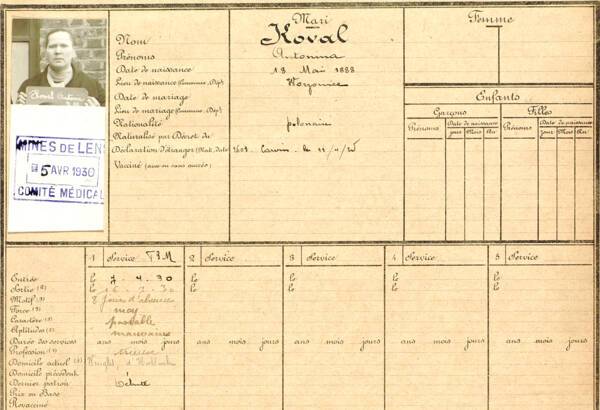 Mari
Femme
Nom Koval
Prénoms Antonina
Date de naissance 18 Mai 1888
Lieu de naissance (Commune, Dép)
Date de mariage
Lieu de mariage (Commune, Dép)
Nationalité polonaise
Naturalisé par Décret du
Déclaration d'étranger (Mat, date) le 11/4/25
Vacciné (avec ou sans succès)
Koval Antonina
MINES DE LENS
5 AVR 1930
COMITÉ MÉDICAL
Enfants
Garçons Filles
Prénoms Date de naissance Prénoms Date de naissance
jour Mois An jour Mois An
1 Service T.B.M 2 Service 3 Service 4 Service 5 Service
Entrée le 7-4-30 le le le le
Sortie (2) le 16-7-30 le le le le
Motif (3) 8 jours d'absence
Force (3) moy
Caractère (3) passable
Aptitudes (3) mauvaises
Durée des services ans mois jours ans mois jours ans mois jours ans mois jours ans mois jours
Profession (4)
Domicile actuel (5)
Domicile précédent
Dernier patron Débute
Prix ou Base
Revacciné